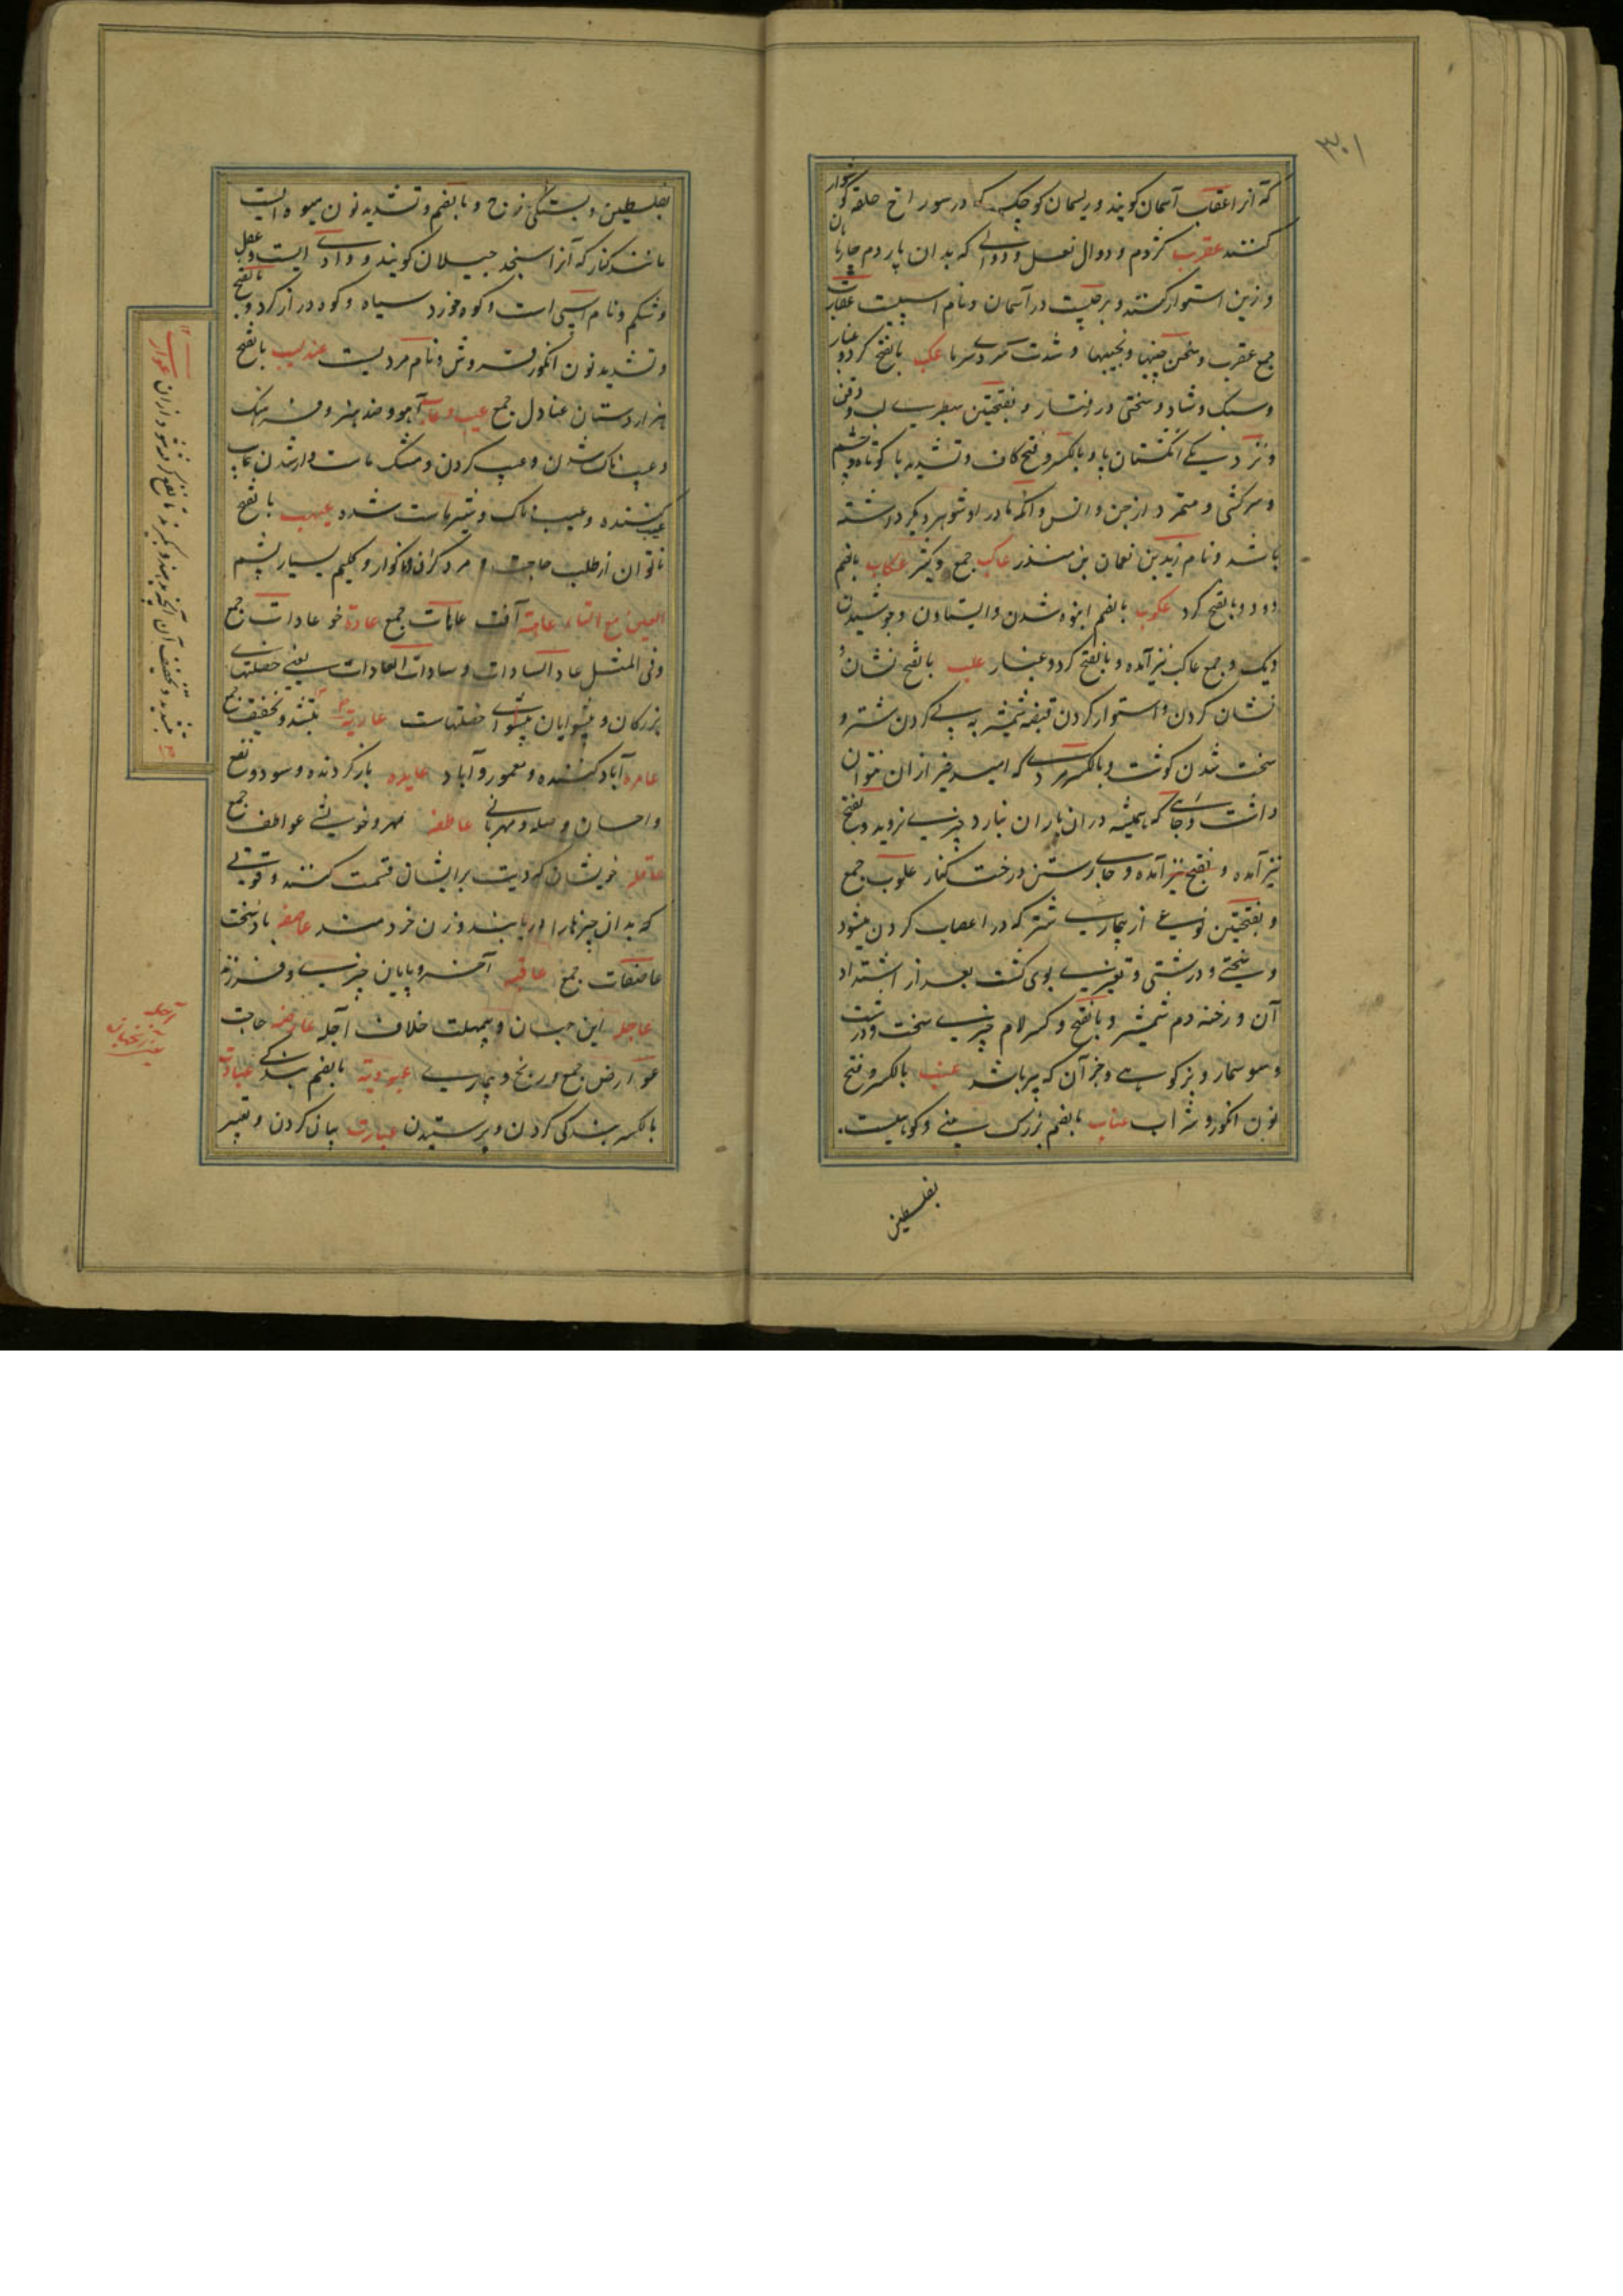 ۳۰۱
که آنرا عقاب آسمان گویند و ریسمان کوچک که در سوراخ حلقه گوشوار
کنند عقرب کژدم و دوال نعل و دوالی که بدان پاردم چارپا
و ازین استوار کنند و برجیست در آسمان و نام اسپیست عقارب
جمع عقرب و سخن چینیها و شدت سردی سرما عکب بالفتح گرد و غبار
و سبک و شاد و سختی در رفتار و بفتحتین سطبری لب و ذقن
و نزدیکی انگشتان پا و بالکسر و فتح کاف و تشدید با کوتاه و
و سرکشی و متمرد از جن و انس و آنکه مادر او شوهر دیگر داشته
باشد و نام زید بن نعمان بن منذر عاکب جمع کثیر عکاب بالضم
دود و بالفتح گرد عکوب بالضم انبوه شدن و ایستادن و جوشیدن
دیک و جمع عاکب نیز آمده و بالفتح گرد و غبار علب بالفتح نشان و
نشان کردن و استوار کردن قبضه شمشیر به پی گردن شتر و
سخت شدن گوشت و بالکسر مردی که امید خیر ازان نتوان
داشت و جائی که همیشه دران باران نبارد چیزی نروید و بفتح
نیز آمده و بفتح نیز آمده و جای رستن درخت کنار علوب جمع
و بفتحتین نوعی از بیماری شتر که در اعصاب گردن میشود
و سختی و درشتی و تغیر بوی گوشت بعد از اشتداد
آن و رخنه دم شمشیر و بالفتح و کسر لام چیزی سخت و درشت
و سوسمار و بز کوهی و جز آن که پیر باشد عنب بالکسر و فتح
نون انگور و شراب عناب بالضم بزرگ بینی و کوهیست
بفلسطین
بفلسطین و بستگی فرج و بالضم و تشدید نون میوه ایست
مانند کنار که آنرا سنجد جیلان گویند و وادی ایست
و شکم و نام اسپی است و کوه خورد سیاه و کوه دراز گرد و بالفتح
و تشدید نون انگور فروش و نام مردیست عندلیب بالفتح
هزار دستان عنادل جمع عیب و عاب آهو و ضد هنر و فرهنگ
و عیب ناک شدن و عیب کردن و مشک ماست وار شدن عایب
عیب کننده و عیب ناک و شیر ماست شده عیهب بالفتح
ناتوان از طلب حاجت و مرد گران ناگوار و گلیم بسیار پشم
العین مع التاء عاهة آفت عاهات جمع عادة خو عادات جمع
و فی المثل عادات السادات و سادات العادات یعنی خصلتهای
بزرگان و پیشوایان پیشوای خصلتهاست عاریة بتشدید و تخفیف
عامره آباد کننده و معمور و آباد عایده بازگردنده و سود و نفع
و احسان و صله و مهربانی عاطفه مهر و خویشی عواطف جمع
عاقله خویشان که دیت بر ایشان قسمت کنند و قوتی
که بدان چیزها را دریابند و زن خردمند عاصفه باد سخت
عاصفات جمع عاقبه آخر و پایان چیزی و فرزند
عاجله این جهان و بیمهلت خلاف آجله عارضه حاجت
عوارض جمع و رنج و بیماری عبودیة بالضم بندگی عبادت
بالکسر بندگی کردن و پرستیدن عبارت بیان کردن و تعبیر
آجله
آن جهان